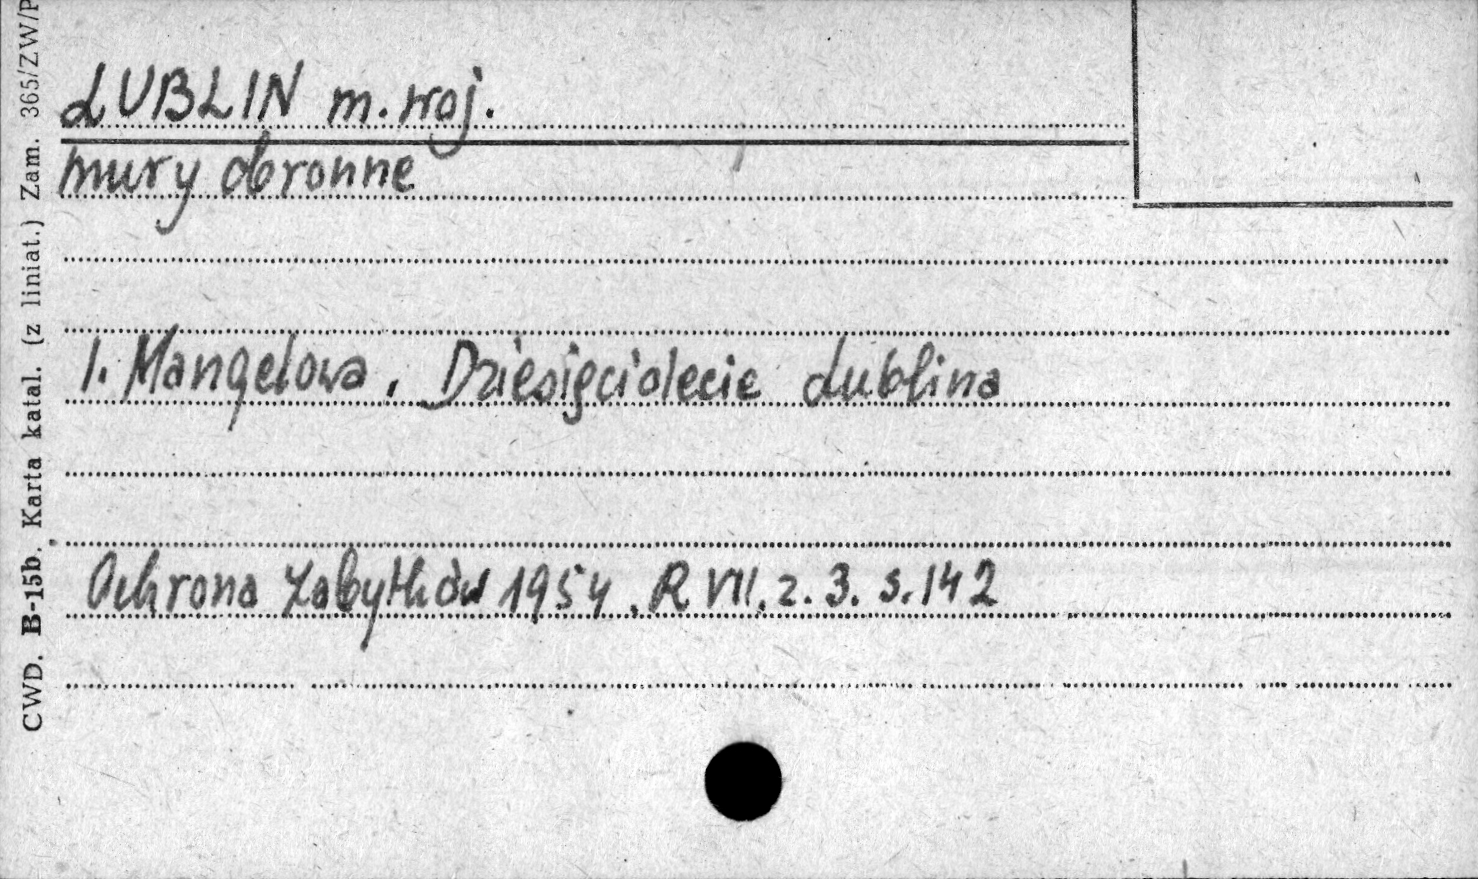 LUBLIN m. woj.
mury obronne
I. Mangelowa. Dziesięciolecie Lublina
Ochrona Zabytków 1954. R VII. z. 3. s. 142
CWD. B-15b. Karta katal. (z liniat.) Zam. 365/ZW/P